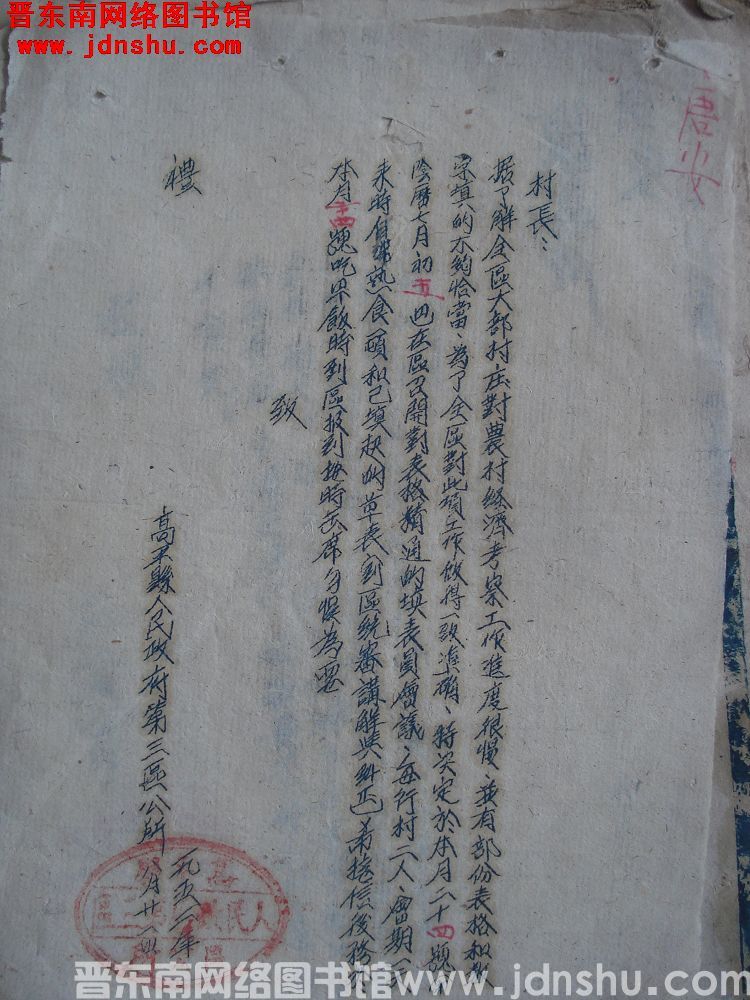 晋东南网络图书馆
www.jdnshu.com
唐安
村長：
据了解全區大部村庄對農村經濟考察工作進度很慢、並有部份表格和數
字填的不夠恰當、為了全區對此項工作做得一致準確、特决定於本月二十四號
陰曆七月初五 在區召開對表格精通的填表員會議、每行村二人、會期一
來時自带熟食 和已填起的草表到區統審講解與糾正希接信後務于
本月二十四號吃早飯時到區报到按時出席勿悮為要
致
禮
高平縣人民政府第三區公所
一九五二年 八月廿一日
晋东南网络图书馆 www.jdnshu.com